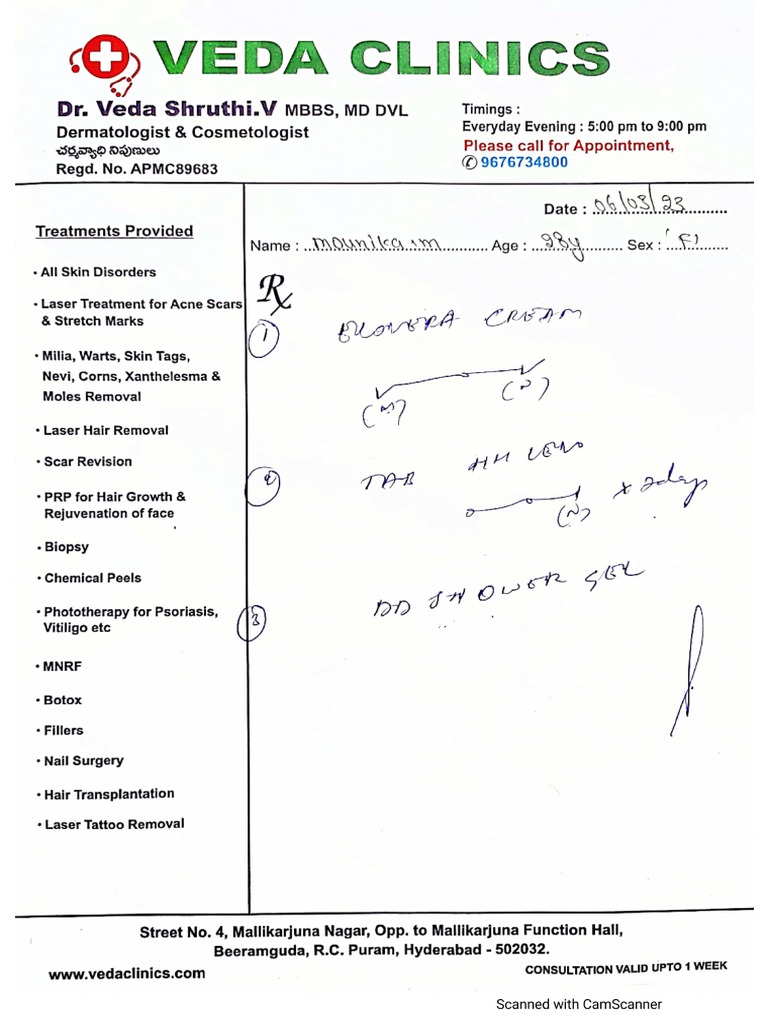 VEDA CLINICS
Dr. Veda Shruthi.V MBBS, MD DVL
Dermatologist & Cosmetologist
చర్మవ్యాధి నిపుణులు
Regd. No. APMC89683
Timings :
Everyday Evening : 5:00 pm to 9:00 pm
Please call for Appointment,
9676734800
Date : 06/03/23
Name : mounika.m Age : 28y Sex : 'F'
Treatments Provided
• All Skin Disorders
• Laser Treatment for Acne Scars
& Stretch Marks
• Milia, Warts, Skin Tags,
Nevi, Corns, Xanthelesma &
Moles Removal
• Laser Hair Removal
• Scar Revision
• PRP for Hair Growth &
Rejuvenation of face
• Biopsy
• Chemical Peels
• Phototherapy for Psoriasis,
Vitiligo etc
• MNRF
• Botox
• Fillers
• Nail Surgery
• Hair Transplantation
• Laser Tattoo Removal
Rx
1 CREAM
(M) (N)
2 TAB HH LEVO
(N) x days
3 SHOWER GEL
Street No. 4, Mallikarjuna Nagar, Opp. to Mallikarjuna Function Hall,
Beeramguda, R.C. Puram, Hyderabad - 502032.
www.vedaclinics.com
CONSULTATION VALID UPTO 1 WEEK
Scanned with CamScanner